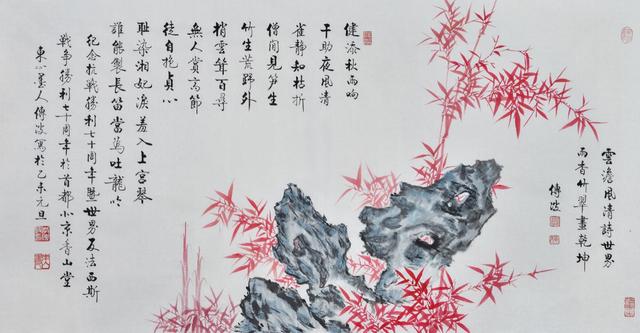 雲澹風清詩世界
雨香竹翠畫乾坤
傅波
健添秋雨响
干助夜風清
雀静知枯折
僧閒見笋生
竹生荒野外
梢雲聳百尋
無人賞高節
徒自抱貞心
耻染湘妃淚羞入上宮琴
誰能製長笛當爲吐龍吟
紀念抗戰勝利七十周年暨世界反法西斯
戰争勝利七十周年於首都小京香山堂
墨人傅波寫於乙未元旦